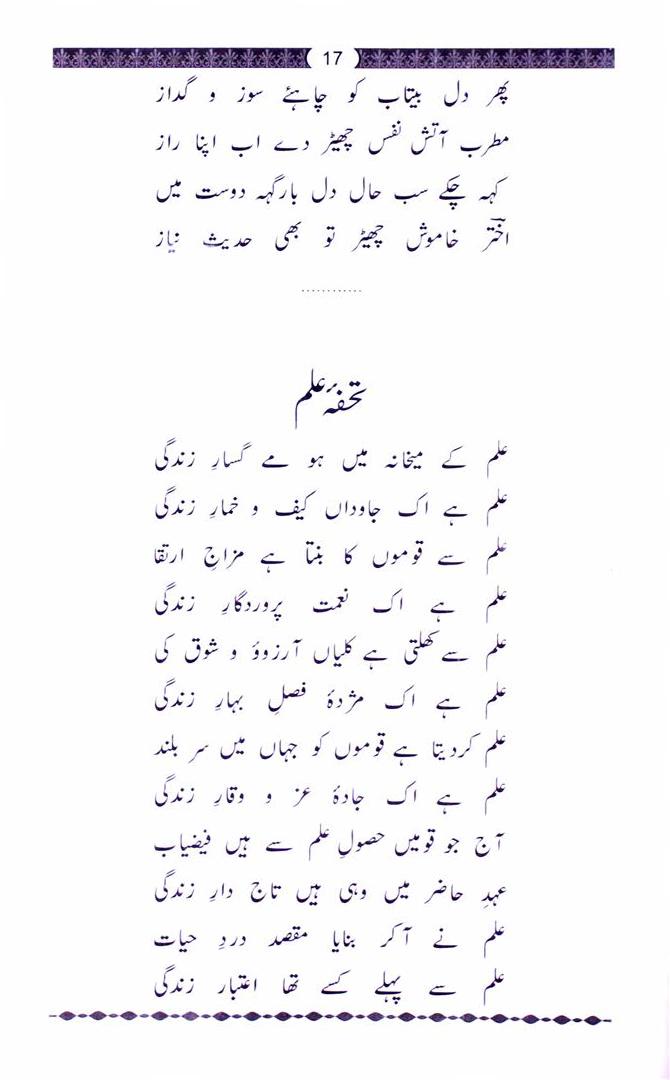 17
پھر دل بیتاب کو چاہئے سوز و گداز
مطرب آتش نفس چھیڑ دے اب اپنا راز
کہہ چکے سب حال دل بارگہہ دوست میں
اختر خاموش چھیڑ تو بھی حدیث نیاز
............
تحفۂ علم
علم کے میخانہ میں ہو مے گسارِ زندگی
علم ہے اک جاوداں کیف و خمارِ زندگی
علم سے قوموں کا بنتا ہے مزاجِ ارتقا
علم ہے اک نعمت پروردگارِ زندگی
علم سے کھلتی ہے کلیاں آرزوؤ و شوق کی
علم ہے اک مژدۂ فصلِ بہارِ زندگی
علم کردیتا ہے قوموں کو جہاں میں سر بلند
علم ہے اک جادۂ عز و وقارِ زندگی
آج جو قومیں حصولِ علم سے ہیں فیضیاب
عہدِ حاضر میں وہی ہیں تاج دارِ زندگی
علم نے آکر بنایا مقصد دردِ حیات
علم سے پہلے کسے تھا اعتبار زندگی